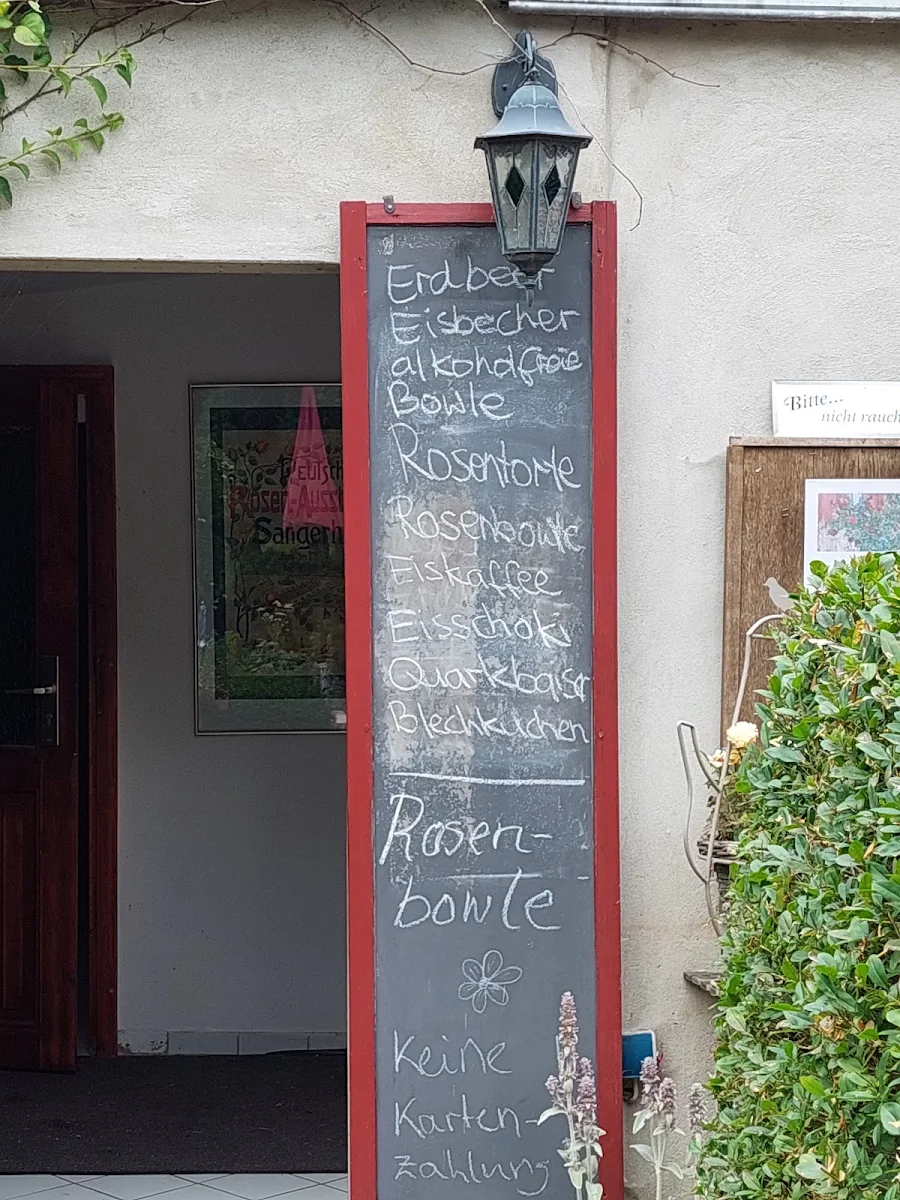 Erdbeer
Eisbecher
alkoholfreie
Bowle
Rosentorte
Rosenbowle
Eiskaffee
Eisschoki
Quarkbaiser
Blechkuchen
Rosen-
bowle
Keine
Karten-
zahlung
Deutsch
Rosen-Ausst
Sangerh
Bitte...
nicht rauch